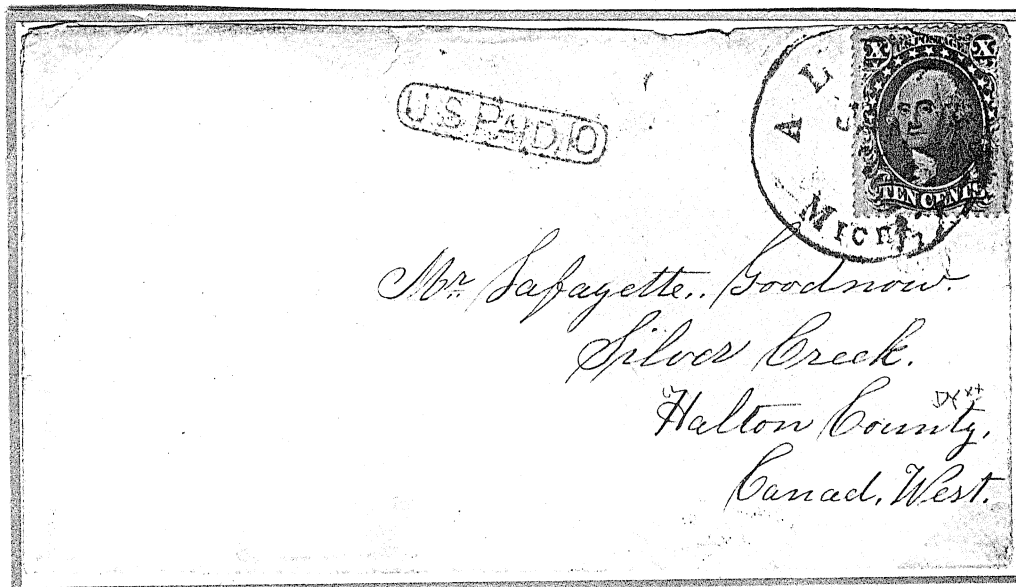 U.S. PAID. 10
X U.S. POSTAGE X
TEN CENTS
MICH
Mr. Lafayette.. Goodnow.
Silver Creek.
Halton County,
Canad, West.